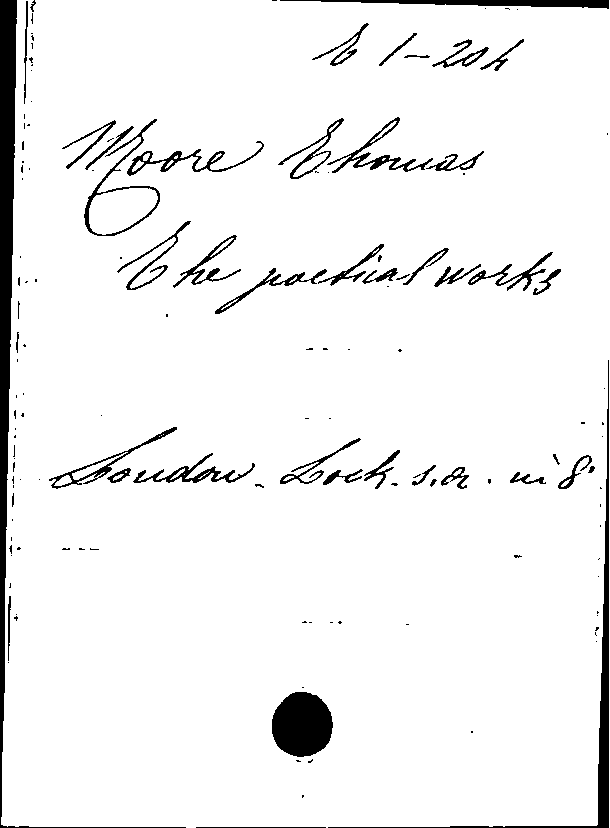 E 1-204
Moore Thomas
The poetical works
London. Lock. s.a. in 8°